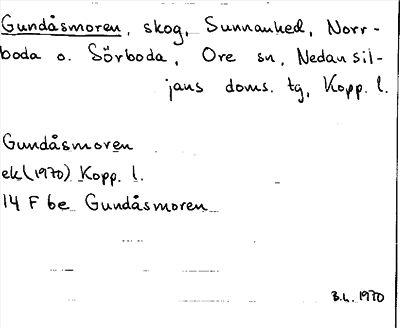 Gundåsmoren, skog, Sunnanhed, Norr-
boda o. Sörboda, Ore sn, Nedansil-
jans doms. tg, Kopp. l.
Gundåsmoren
ek (1970) Kopp. l.
14 F be Gundåsmoren
B.L. 1970